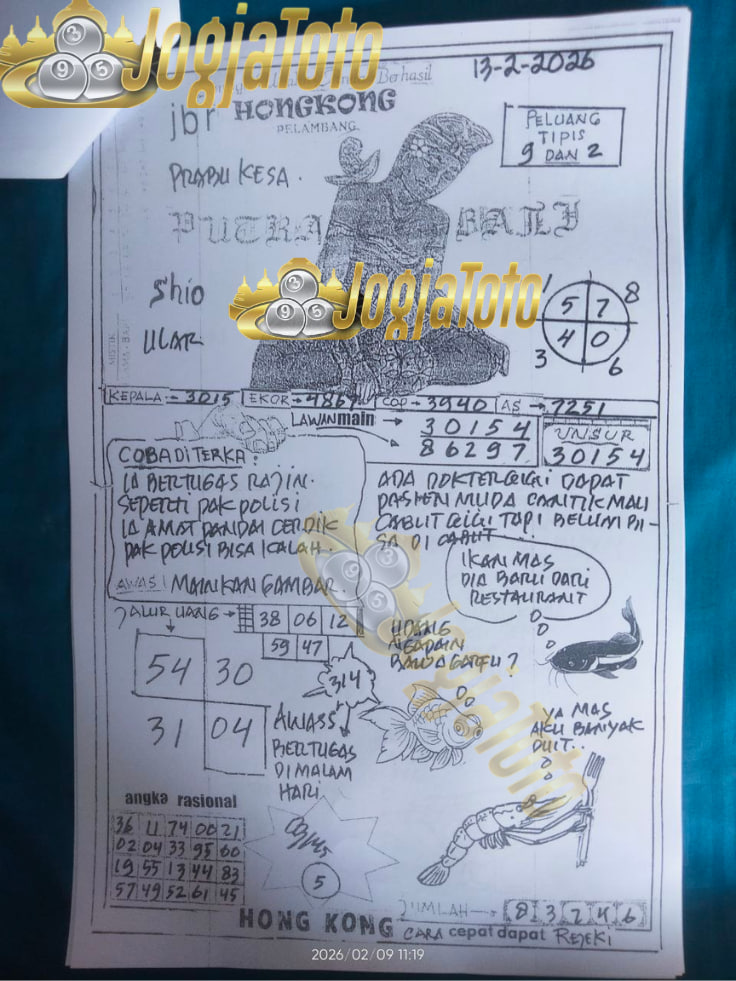 JogjaToto
3
9 5
Berhasil
13-2-2026
jbr HONGKONG
PELAMBANG
PELUANG
TIPIS
9 DAN 2
PRABU KESA.
PUTRA BALI
Shio
ULAR
JogjaToto
3
9 5
1 8
5 7
4 0
3 6
KEPALA - 3015 EKOR - 4867 COP - 3940 AS - 7251
LAWAN main → 30154
86297
UNSUR
30154
COBA DITERKA:
IA BERTUGAS RAJIN.
SEPERTI PAK POLISI
IA AMAT PANDAI CERDIK
PAK POLISI BISA KALAH.
AWAS! MAINKAN GAMBAR.
ADA DOKTER GIGI DAPAT
PASIEN MUDA CANTIK MAU
CABUT GIGI TAPI BELUM BI-
SA DI CABUT..!
IKAN MAS
DIA BARU DARI
RESTAURANT
JALUR UANG → 38 06 12
59 47
54 30
31 04
314
UDANG
NGAPAIN
BAWA GARFU?
AWASS
BERTUGAS
DIMALAM
HARI.
YA MAS
AKU BANYAK
DUIT..
JogjaToto
3
9 5
angka rasional
36 11 74 00 21
02 04 33 95 60
19 55 13 44 83
57 49 52 61 45
5
JUMLAH → 8 3 7 4 6
HONG KONG CARA cepat dapat REJEKI
2026/02/09 11:19